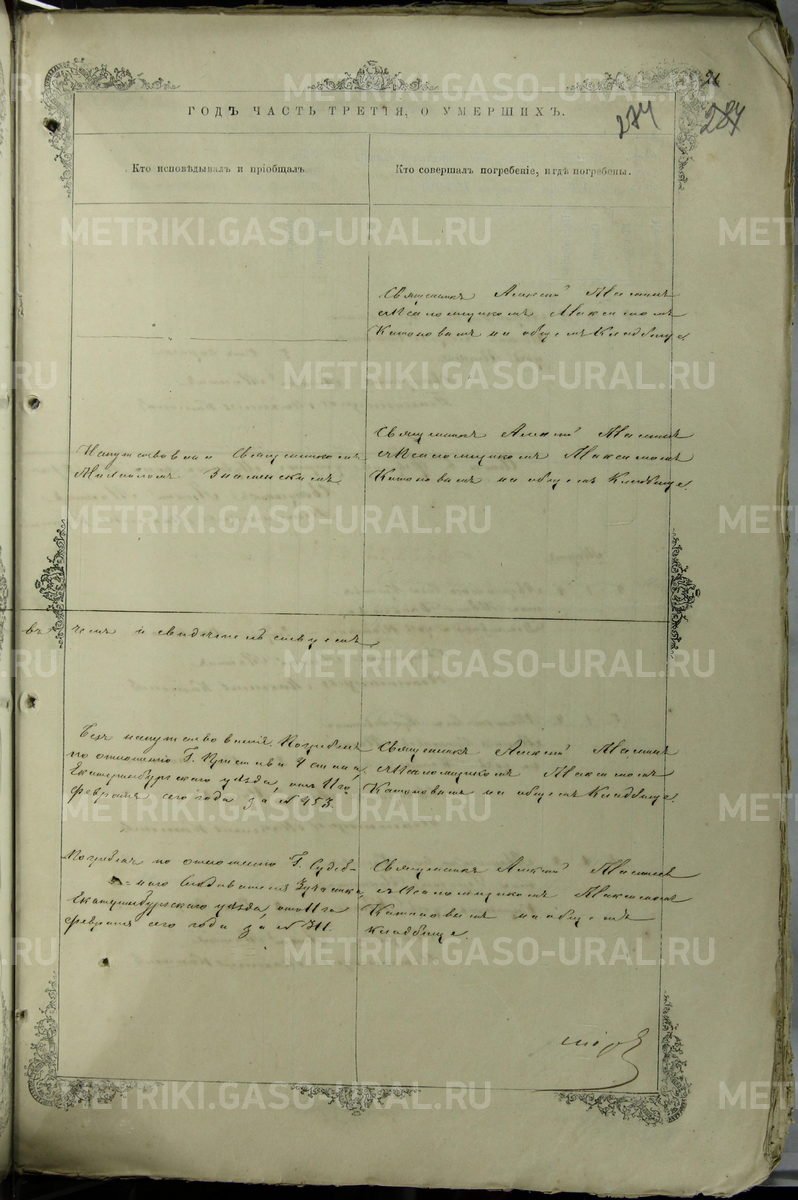 26
274
287
ГОДЪ ЧАСТЬ ТРЕТІЯ, О УМЕРШИХЪ.
Кто исповѣдывалъ и пріобщалъ.
Кто совершалъ погребеніе, и гдѣ погребены.
Священникъ Алексѣй
съ Псаломщикомъ Максимомъ
на общемъ Кладбищѣ.
Священникъ Алексѣй
съ Псаломщикомъ Максимомъ
на общемъ Кладбищѣ.
Напутствованъ Священникомъ
Михаиломъ Знаменскимъ
въ чемъ и свидѣтельствуемъ
Безъ напутствованія. Погребенъ
по отношенію Г. Пристава 4 стана,
Екатеринбургскаго уѣзда, отъ
февраля сего года за № 453.
Священникъ Алексѣй
съ Псаломщикомъ Максимомъ
на общемъ Кладбищѣ.
по отношенію Г. Судеб-
наго Слѣдователя 3 участка,
Екатеринбургскаго уѣзда, отъ
февраля сего года за № 311.
Священникъ Алексѣй
съ Псаломщикомъ Максимомъ
на общемъ
кладбищѣ.
METRIKI.GASO-URAL.RU